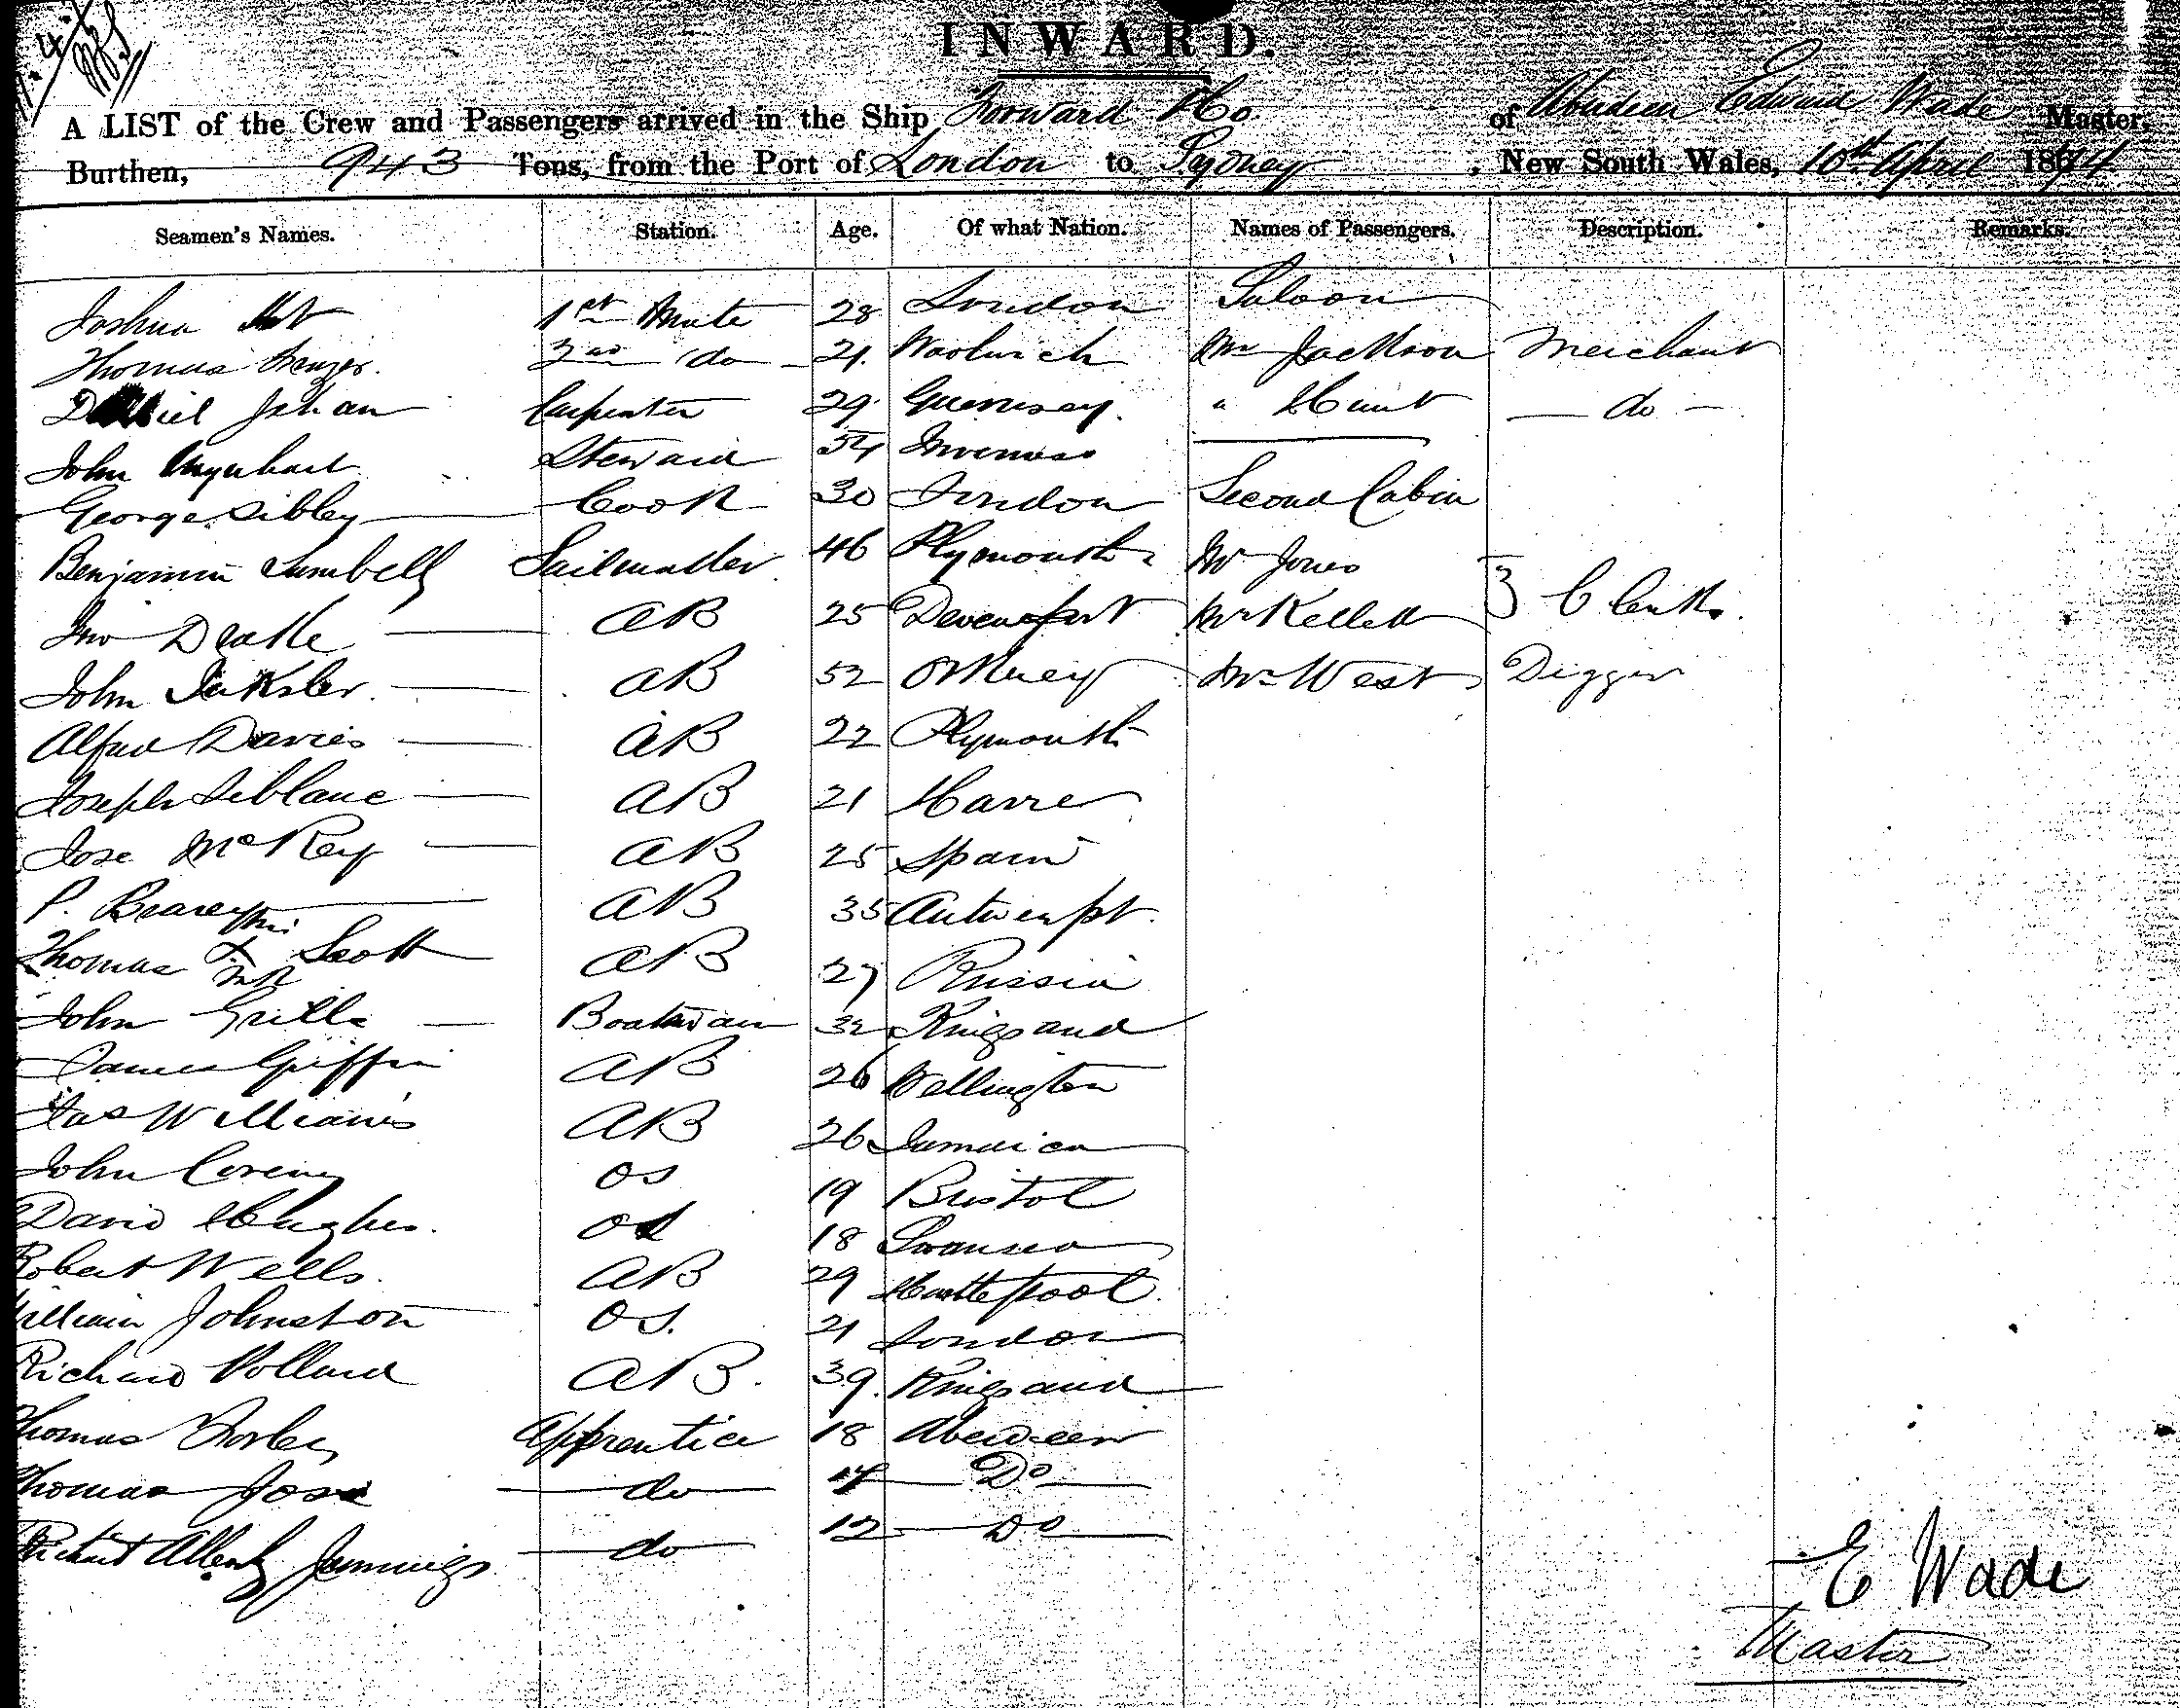 INWARD.
A LIST of the Crew and Passengers arrived in the Ship Forward Ho. of Aberdeen Edward Wade Master,
Burthen, 943 Tons, from the Port of London to Sydney, New South Wales, 10th April 1874
Seamen's Names. Station. Age. Of what Nation. Names of Passengers. Description. Remarks.
Joshua 1st Mate 28 London Saloon
Thomas 2nd do 21. Woolwich Mr Jackson Merchant
Jehan Carpenter 29 Guernsey. " Hunt do
John Urquhart Steward 54 Inverness
George Sibley Cook 30 London Second Cabin
Benjamin Sumbell Sailmaker 46 Plymouth Mr Jones
Jno Deake AB 25 Devenport Mr Kellett } Clerks.
John AB 52 Orkney Mr West Digger
Alfred Davies AB 22 Plymouth
Joseph Leblanc AB 21 Havre
Jose McRey AB 25 Spain
P. AB 35 Antwerp
Thomas X Scott AB 27 Russia
John Grills Boatswain 32 Kingsand
James Griffin AB 26 Wellington
Jas Williams AB 26 Jamaica
John OS 19 Bristol
David Hughes. OS 18 Swansea
Robert Wells. AB 29 Hartlepool.
William Johnston OS. 21 London
Richard Pollard AB. 39. Kingsand
Thomas Apprentice 18 Aberdeen
Thomas Jose do 17 Do
Richard Jennings do 12 Do
E Wade
Master